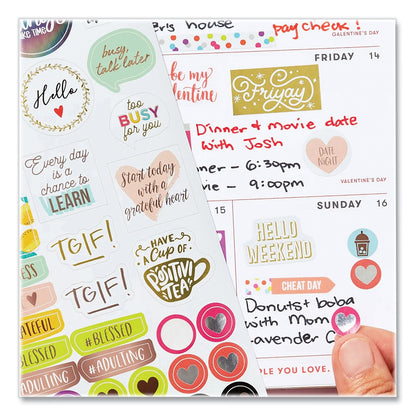 TAKE TIME
busy,
talk later
Hello
too
BUSY
for you
Every day
is a
chance to
LEARN
Start today
with a
grateful heart
TGIF!
TGIF!
HAVE
A CUP OF
POSITIVI
TEA
#BLESSED
#BLESSED
#ADULTING
#ADULTING
house
paycheck!
GALENTINE'S DAY
FRIDAY 14
be my
Valentine
Friyay
Dinner + movie date
with Josh
DATE
NIGHT
- 6:30pm
- 9:00pm
VALENTINE'S DAY
15
SUNDAY 16
HELLO
WEEKEND
CHEAT DAY
Donuts + boba
with Mom
YOU LOVE.